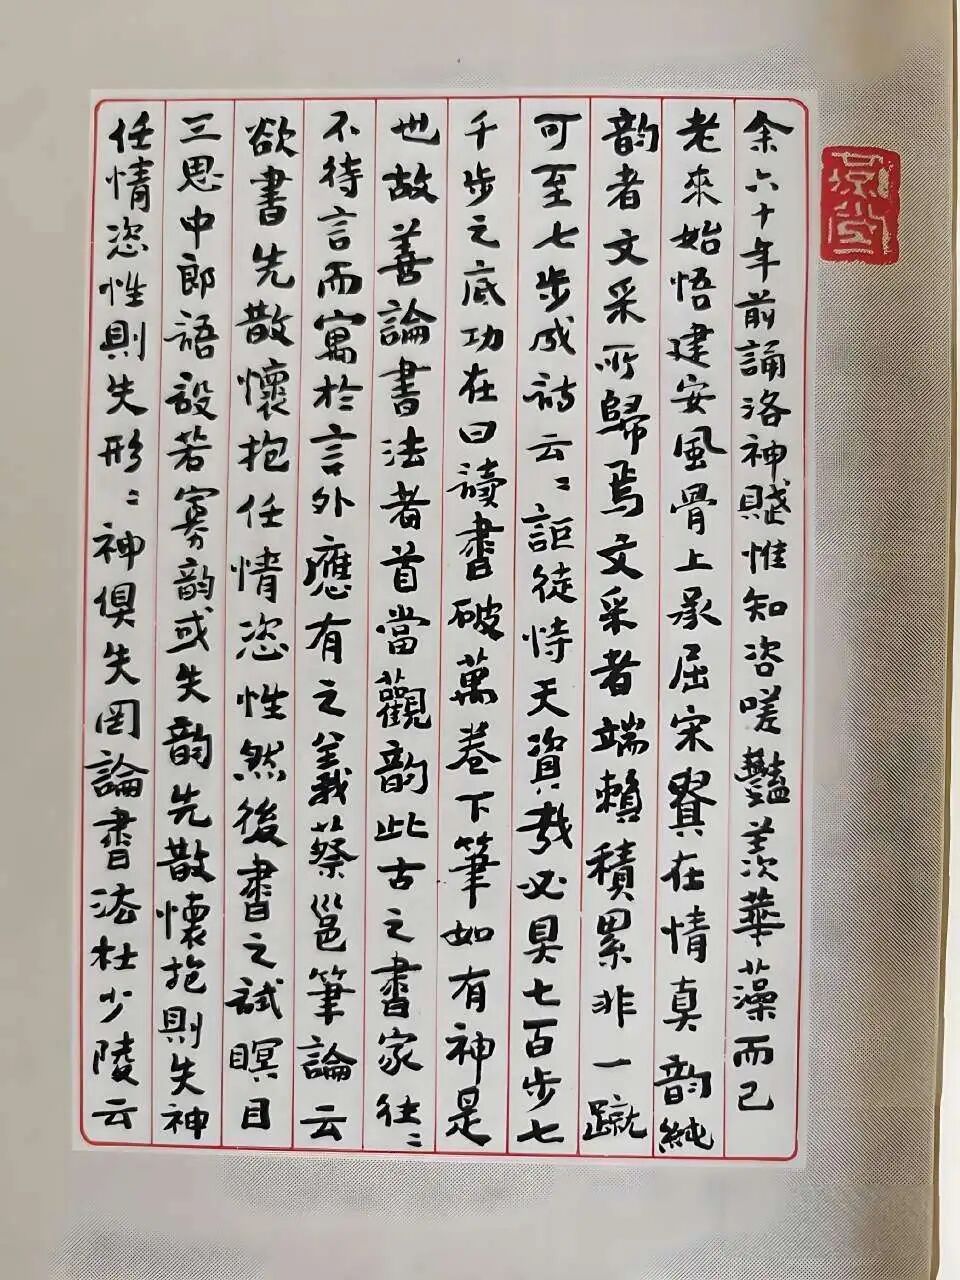 余六十年前誦洛神賦惟知咨嗟豔羨華藻而已
老來始悟建安風骨上承屈宋賢在情真韵純
韵者文采所歸焉文采者端賴積累非一蹴
可至七步成詩云〻詎徒恃天資哉必具七百步七
千步之底功在曰讀書破萬卷下筆如有神是
也故善論書法者首當觀韵此古之書家往〻
不待言而寓於言外應有之義蔡邕筆論云
欲書先散懷抱任情恣性然後書之試瞑目
三思中郎語設若寡韵或失韵先散懷抱則失神
任情恣性則失形〻神俱失罔論書法杜少陵云